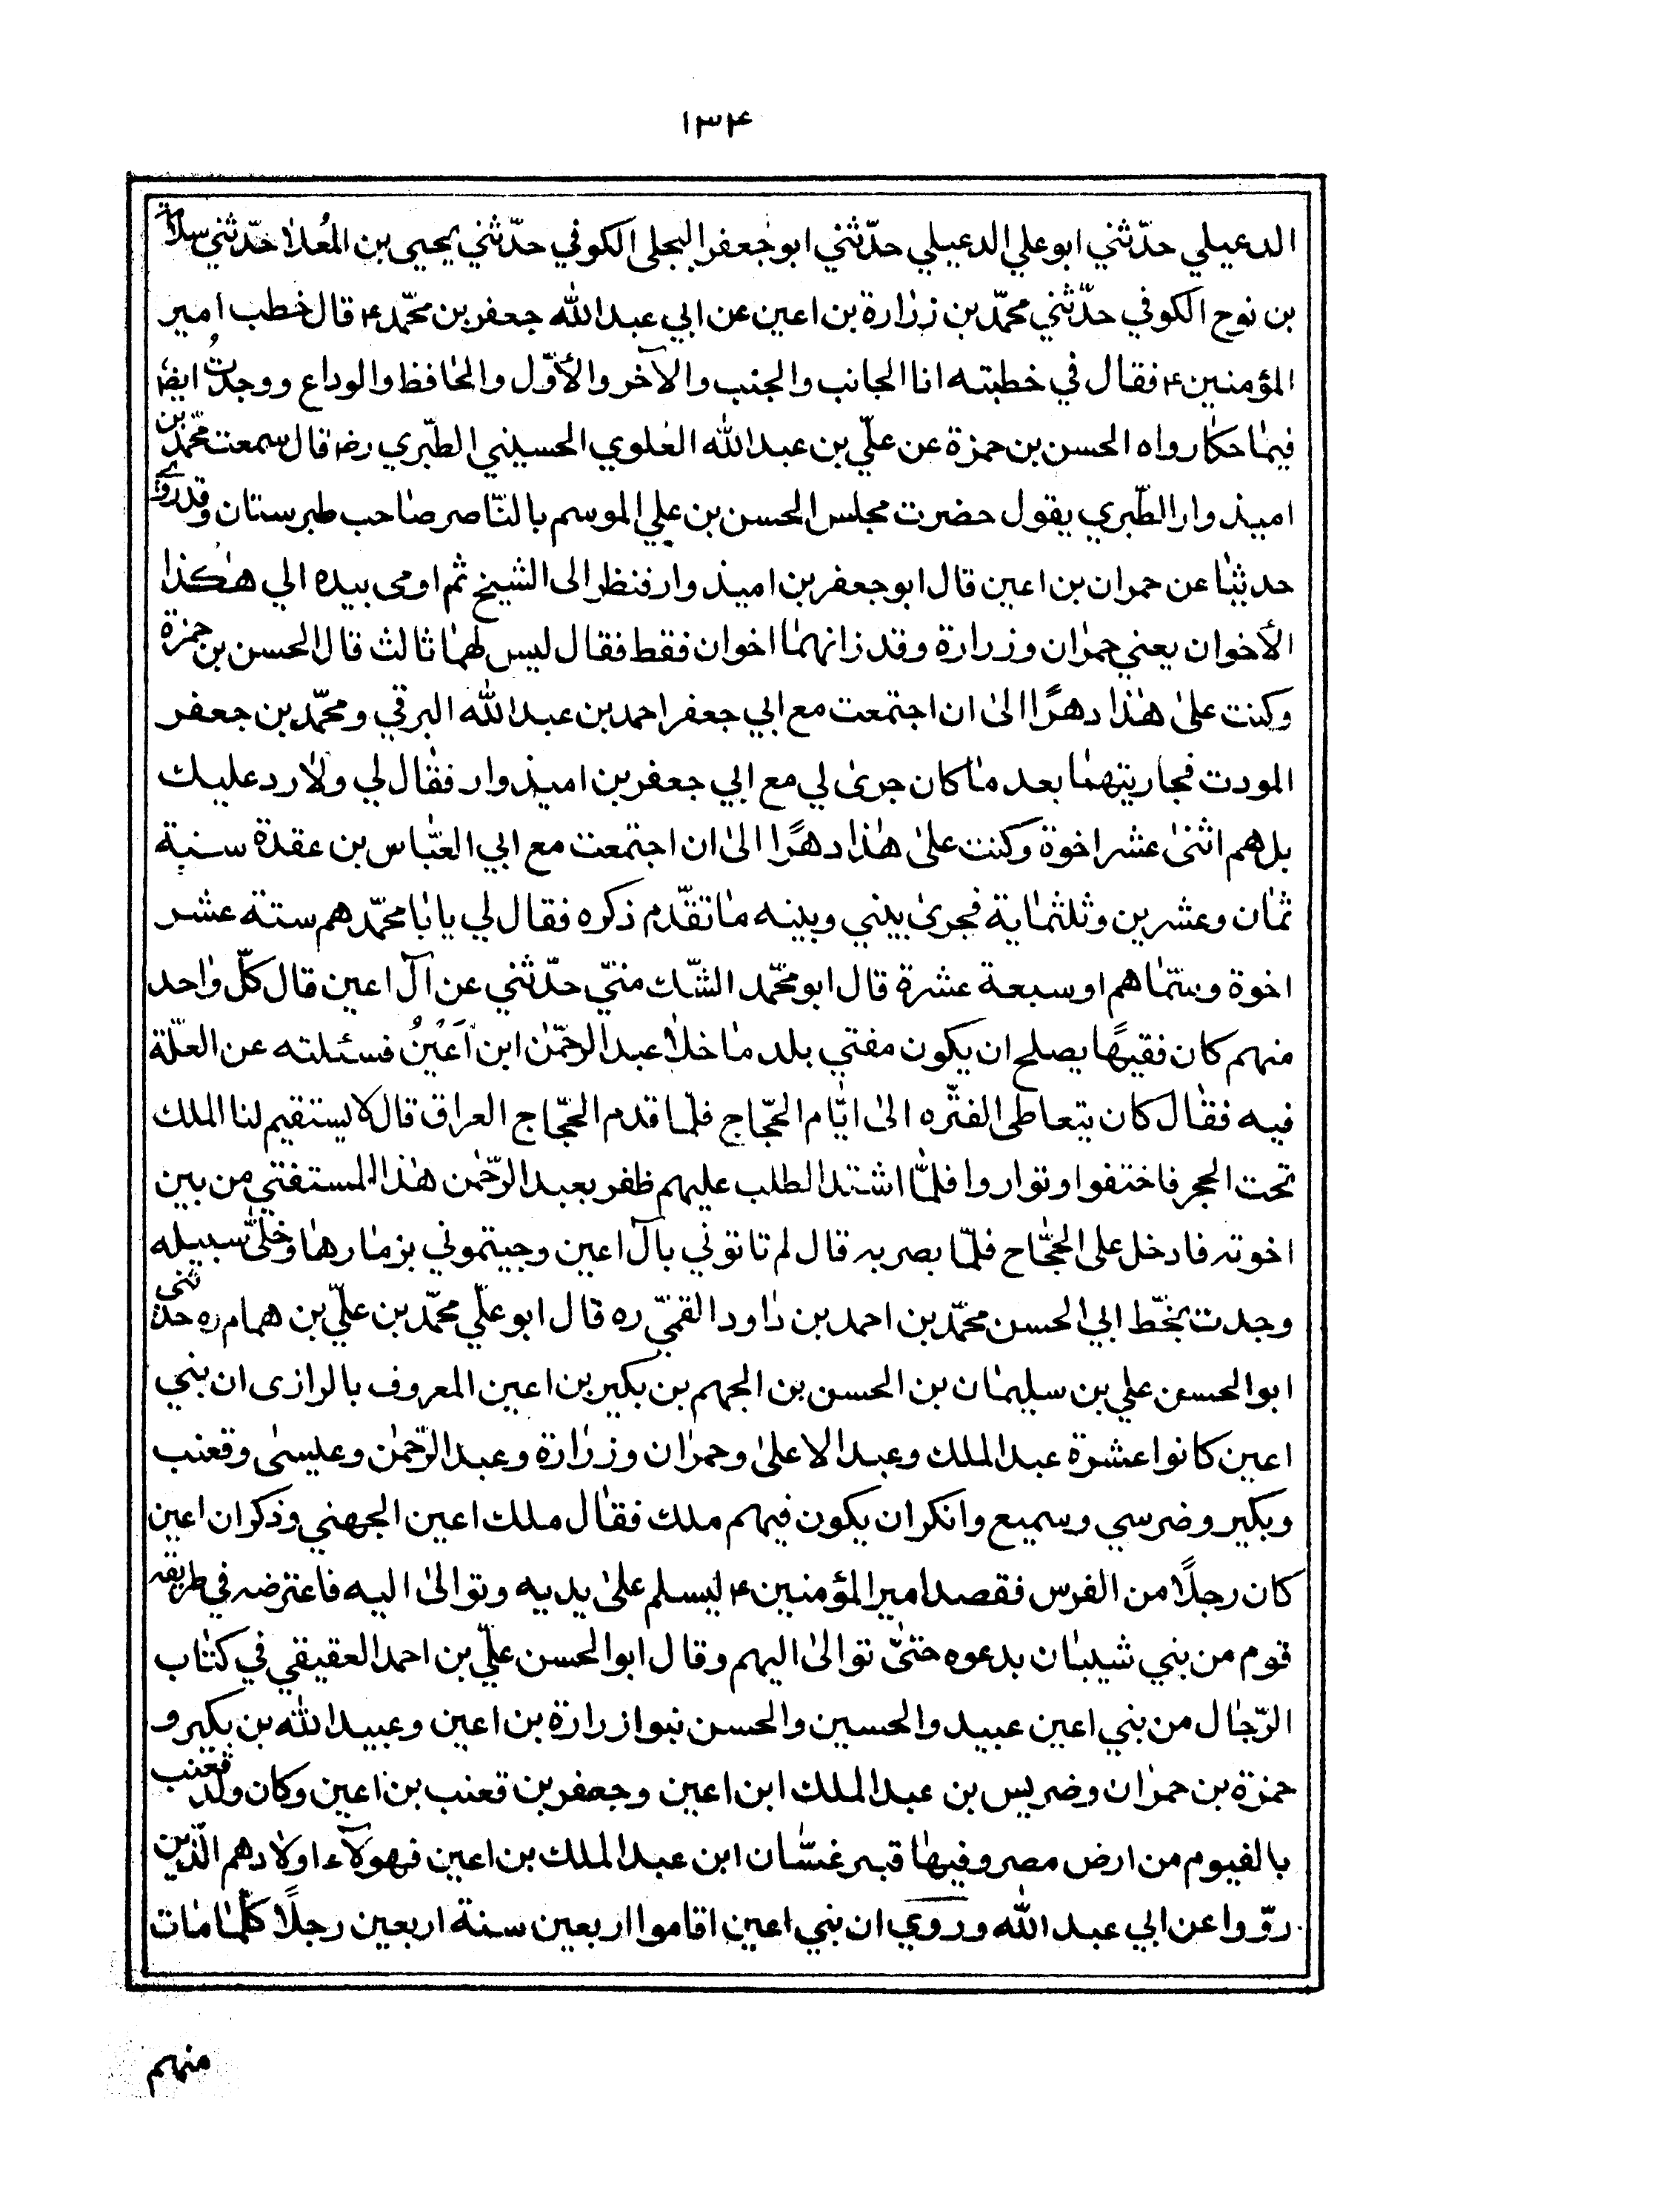 ١٣۴
الدعبلي حدّثني ابو علي الدعبلي حدّثني ابو جعفر البجلي الكوفي حدّثني يحيى بن المُعلا حدّثني سلامة
بن نوح الكوفي حدّثني محمّد بن زرارة بن اعين عن ابي عبد الله جعفر بن محمّد ع قال خطب امير
المؤمنين ع فقال في خطبته انا الجانب والجنب والآخر والأوّل والحافظ والوداع ووجدتُ ايضا
فيما حكا رواه الحسن بن حمزة عن علّي بن عبد الله العلوي الحسيني الطبّري رض قال سمعت محمّد بن
اميذوار الطبّري يقول حضرت مجلس الحسن بن علي الموسم بالنّاصر صاحب طبرستان وقد روى
حديثا عن حمران بن اعين قال ابو جعفر بن اميذوار فنظر الى الشيخ ثم اومى بيده الي هكذا
الأخوان يعني حمران وزرارة وقدر انهما اخوان فقط فقال ليس لهما ثالث قال الحسن بن حمزة
وكنت على هذا دهرًا الى ان اجتمعت مع ابي جعفر احمد بن عبد الله البرقي ومحمّد بن جعفر
المودت فجاريتهما بعد ما كان جرى لي مع ابي جعفر بن اميذوار فقال لي ولارد عليك
بل هم اثنى عشر اخوة وكنت على هذا دهرًا الى ان اجتمعت مع ابي العبّاس بن عقدة سنة
ثمان وعشرين وثلثماية فجرى بيني وبينه ما تقدّم ذكره فقال لي يا با محمّد هم ستة عشر
اخوة وسمّاهم او سبعة عشرة قال ابو محمّد الشّك منّي حدّثني عن آل اعين قال كلّ واحد
منهم كان فقيهًا يصلح ان يكون مفتي بلد ما خلا عبد الرحمّن ابن اَعْيُنُ فسئلته عن العلّة
فيه فقال كان يتعاطى الفترة الى ايّام الحجّاج فلمّا قدم الحجّاج العراق قال لا يستقيم لنا الملك
تحت الحجر فاختفوا وتواروا فلمّا اشتد الطلب عليهم ظفر بعبد الرحّمن هذا المستفتي من بين
اخوته فادخل على الحجّاح فلمّا بصر به قال لم تاتوني بآل اعين وجيتموني بزمارها وخلّى سبيله
وجدت بخّط ابي الحسن محمّد بن احمد بن داود القمّي ره قال ابو علّي محمّد بن علّي بن همام ره حدثنى
ابو الحسن علي بن سليمان بن الحسن بن الجهم بن بكير بن اعين المعروف بالرازى ان بني
اعين كانوا عشرة عبد الملك وعبد الاعلى وحمران وزرارة وعبد الرحّمن وعيسى وقعنب
وبكير وضرسي وسميع وانكر ان يكون فيهم ملك فقال ملك اعين الجهني وذكر ان اعين
كان رجلًا من الفرس فقصد امير المؤمنين ع ليسلم على يديه وتوالى اليه فاعترضه في طريقه
قوم من بني شيبان بدعوه حتّى توالى اليهم وقال ابو الحسن علّي بن احمد العقيقي في كتاب
الرّجال من بني اعين عبيد والحسين والحسن نبوا زرارة بن اعين وعبيد الله بن بكير و
حمزة بن حمران وضريس بن عبد الملك ابن اعين وجعفر بن قعنب بن اعين وكان ولد قعنب
بالفيوم من ارض مصر وفيها قبر غسّان ابن عبد الملك بن اعين فهولآء اولادهم الّذين
روّوا عن ابي عبد الله وروي ان بني اعين اقاموا اربعين سنة اربعين رجلًا كلّما مات
منهم